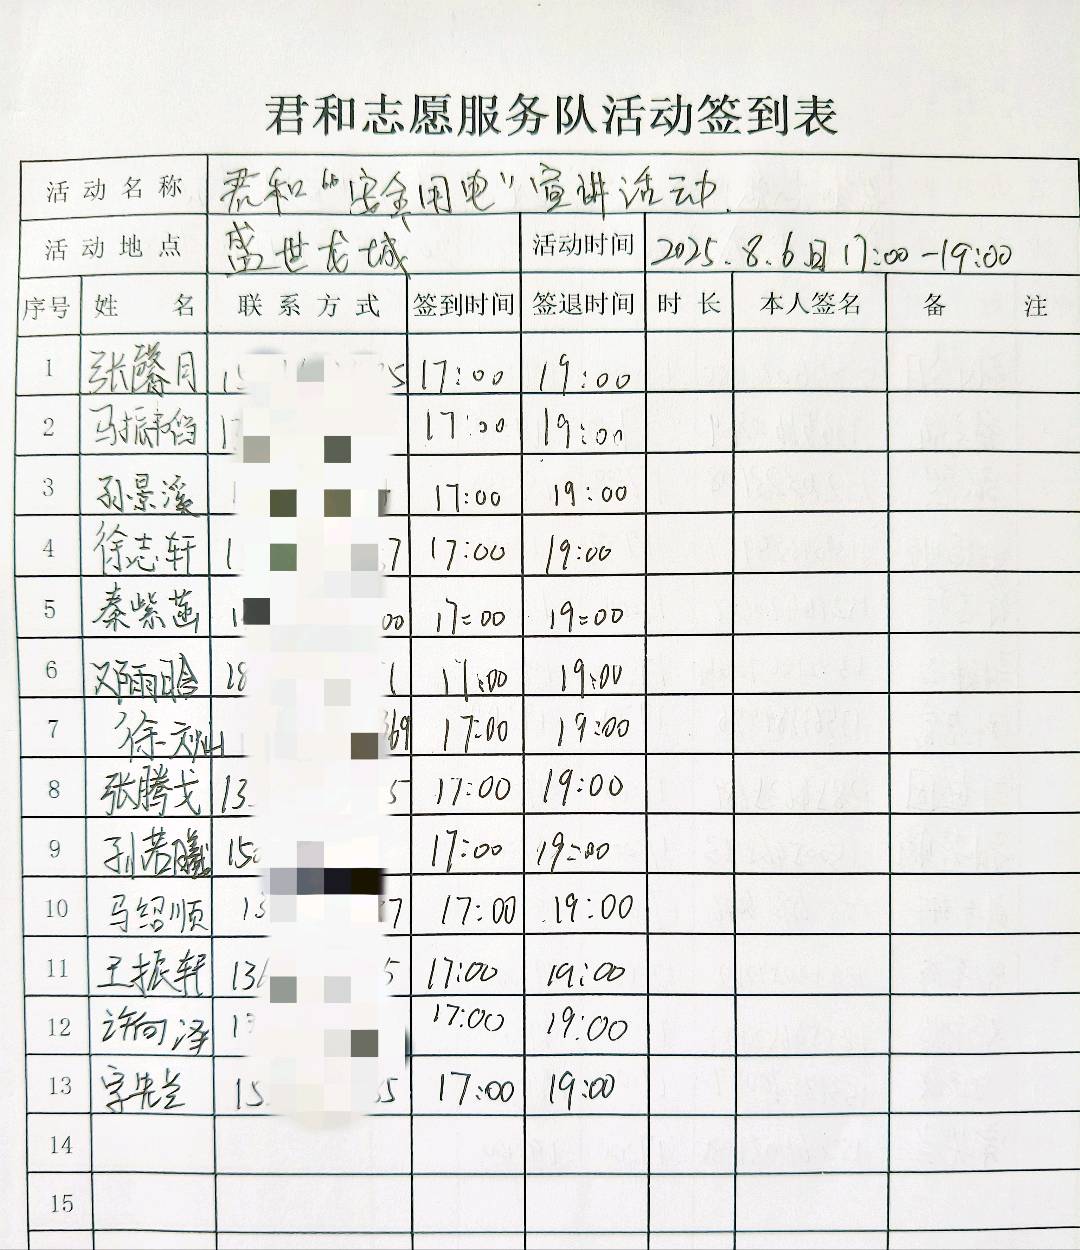 君和志愿服务队活动签到表
活动名称 君和“安全用电”宣讲活动.
活动地点 盛世龙城 活动时间 2025.8.6日 17:00-19:00
序号 姓名 联系方式 签到时间 签退时间 时长 本人签名 备注
1 张馨月 17:00 19:00
2 马振 17:00 19:00
3 孙景溪 17:00 19:00
4 徐志轩 1 7 17:00 19:00
5 秦紫菡 1 00 17:00 19:00
6 邓雨晗 18 1 17:00 19:00
7 徐一 369 17:00 19:00
8 张腾戈 13 5 17:00 19:00
9 孙若曦 150 17:00 19:00
10 马绍顺 13 7 17:00 19:00
11 王振轩 136 5 17:00 19:00
12 许向泽 17:00 19:00
13 15 35 17:00 19:00
14
15